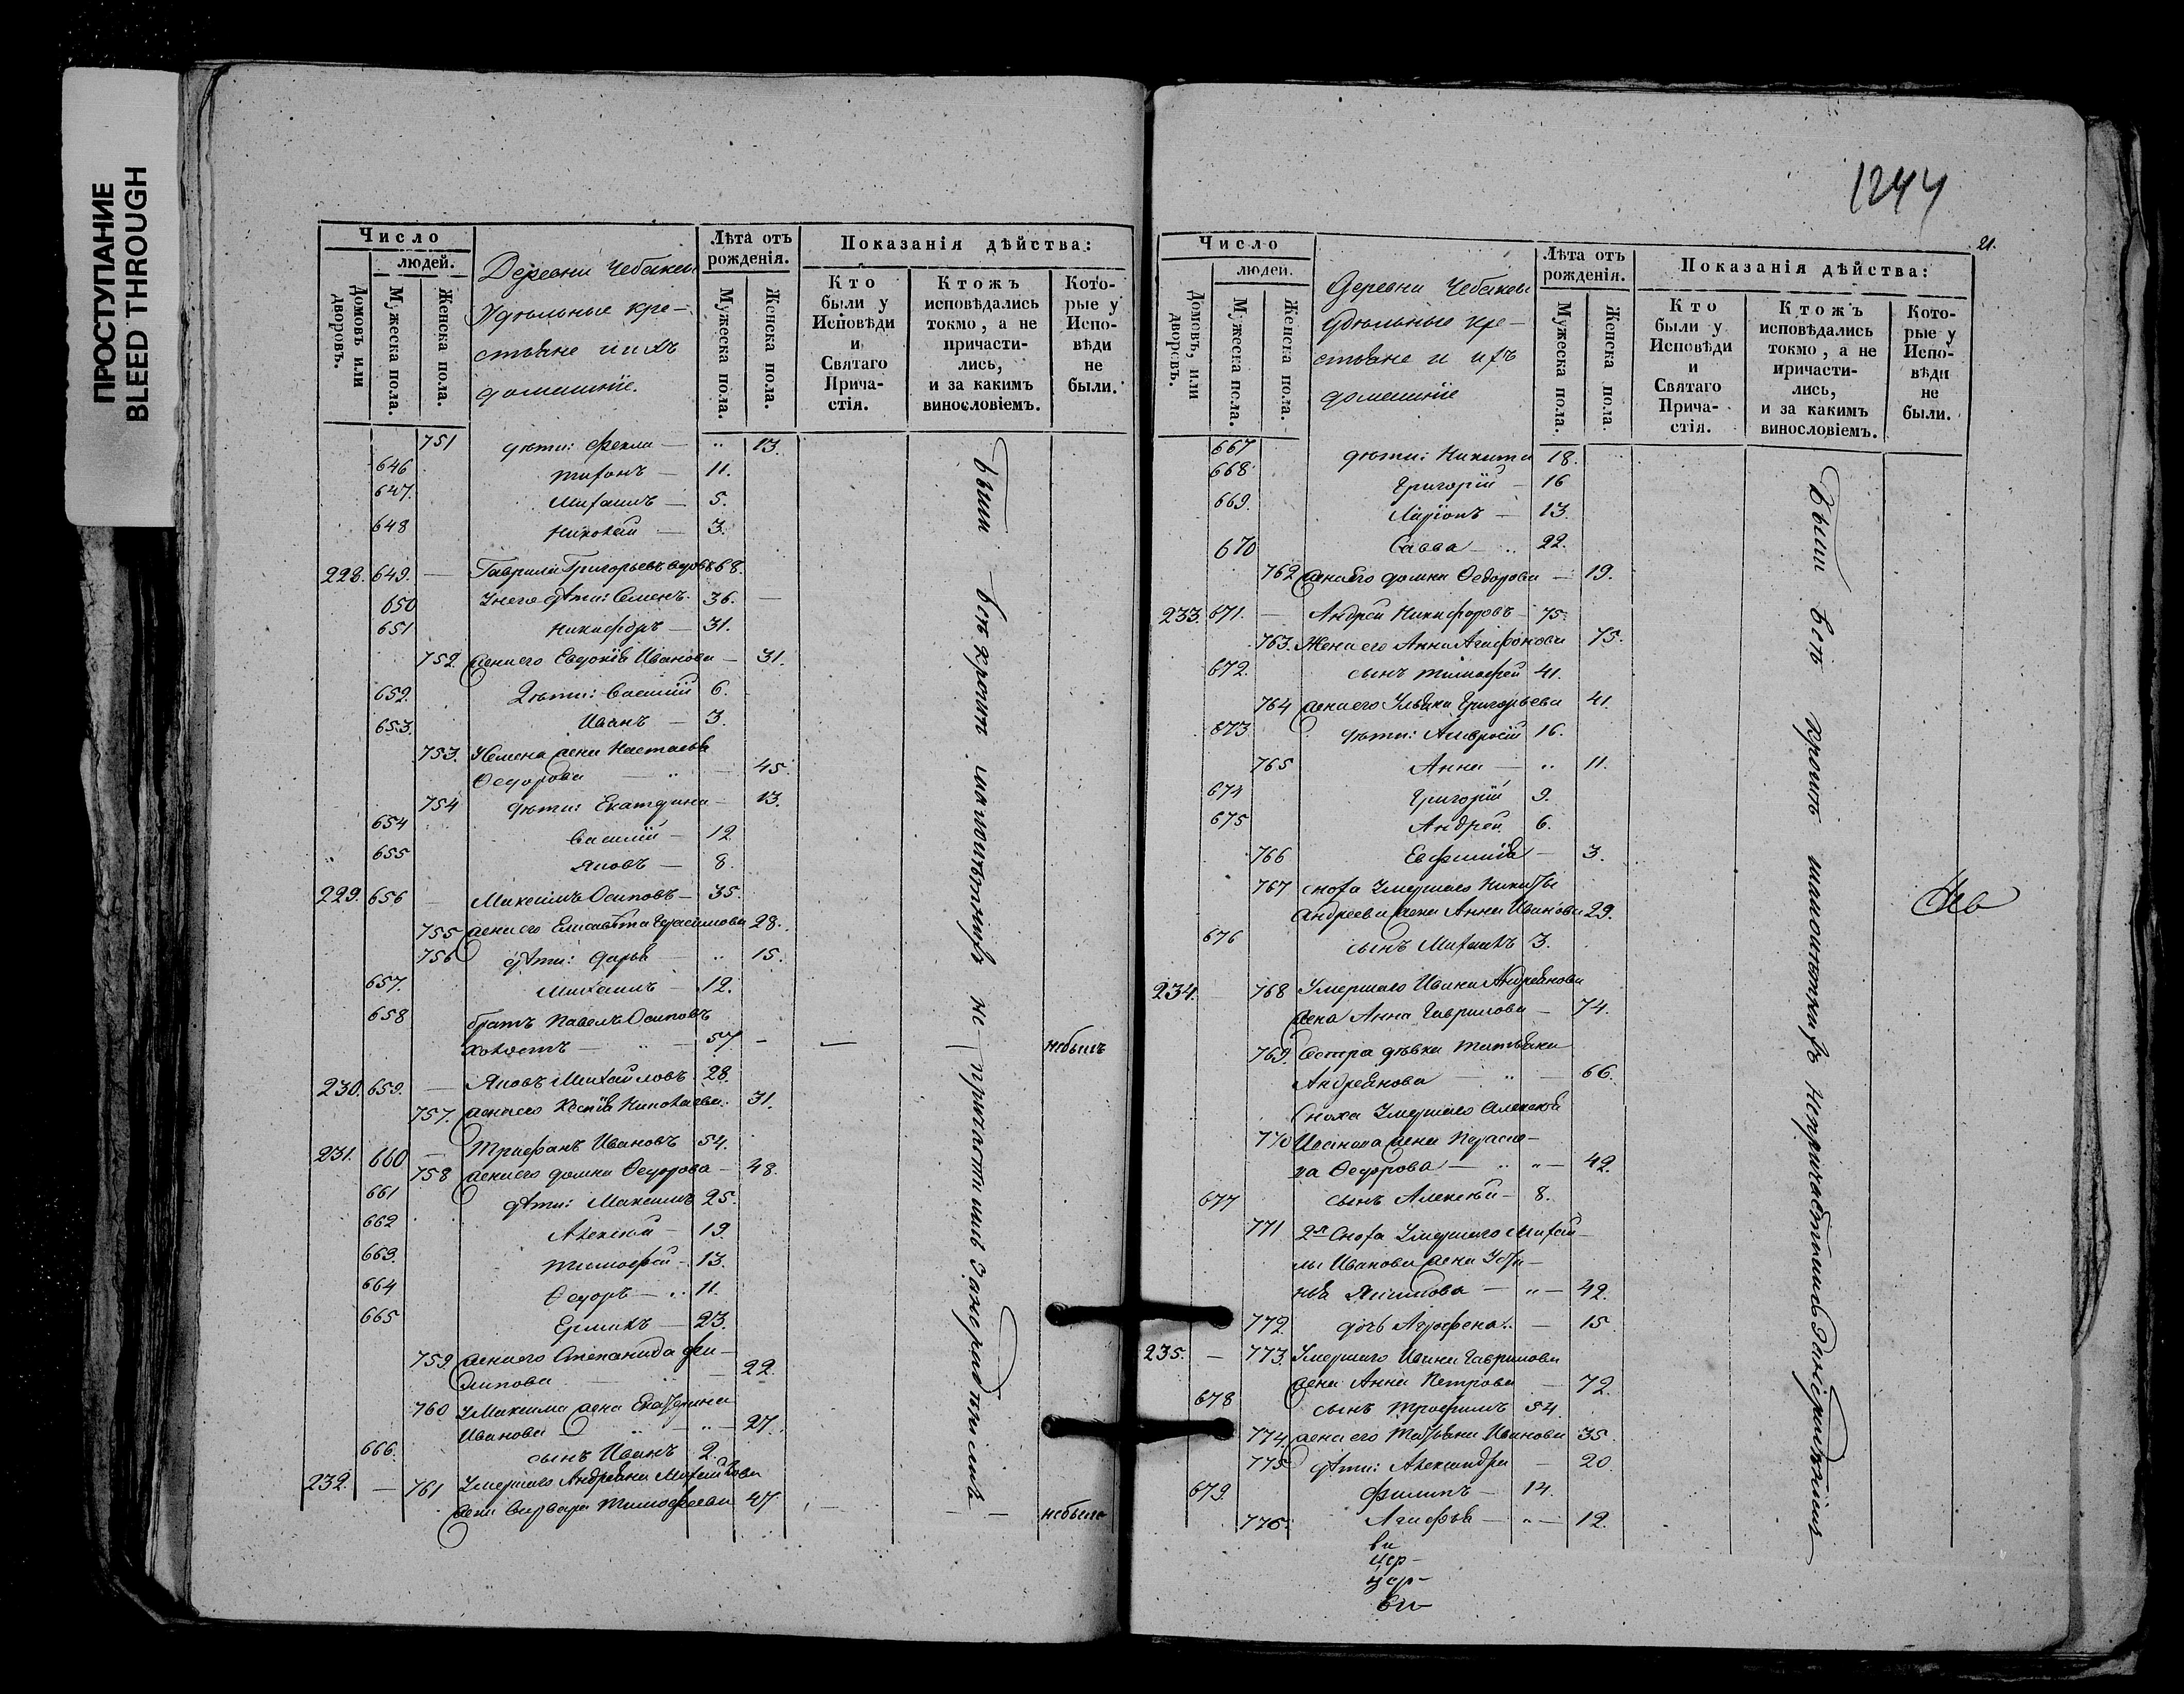 ПРОСТУПАНИЕ
BLEED THROUGH
Число
людей.
Домовъ или дворовъ.
Мужеска пола.
Женска пола.
Деревни Чебаки
Удѣльные кре-
стьяне и ихъ
домашніе.
Лѣта отъ рожденія.
Мужеска пола.
Женска пола.
Показанія дѣйства:
Кто были у Исповѣди и Святаго Прича-стія.
Ктожъ исповѣдались токмо, а не причасти-лись, и за какимъ винословіемъ.
Кото-рые у Испо-вѣди не были.
751 дѣти: Фекла — „ 13.
646 Тихонъ — 11.
647. Михаилъ — 5.
648 Николай — 3.
228. 649. — Гаврила Григорьевъ вдовъ 68.
650 У него дѣти: Семенъ. 36. —
651 Никифоръ — 31.
752. жена его Евдокія Иванова — 31.
652. Дѣти: Василій 6.
653. Иванъ — 3.
753. У Семена жена Настасья
Ѳедорова — „ — 45.
754 дѣти: Екатерина — 13.
654 Василій — 12
655 Яковъ — 8.
229. 656 — Максимъ Осиповъ — 35.
755 жена его Елисавета Герасимова 28.
756 дѣти: Дарья — „ 15.
657. Михаилъ — 12.
658 братъ Павелъ Осиповъ
холостъ — „ — 57 — — небылъ
230. 659. — Яковъ Михайловъ 28.
757. жена его Ксенія Николаева. 31.
231. 660 — Трифанъ Ивановъ 54.
758 жена его Домна Ѳедорова — 48.
661 дѣти: Максимъ 25.
662 Алексѣй — 19.
663. Тимофей — 13.
664 Ѳедоръ — „ 11.
665 Ермилъ — 23.
759. жена его Степанида Фи-
липова — „ — 22.
760 У Максима жена Екатерина
Иванова — „ — „ — 27.
666. сынъ Иванъ 2.
232. — 761 Умершаго Андреяна Михайлова
жена Варвара Тимофеева 47. — — небыла
Были всѣ кромѣ малолѣтнихъ не причастились за нерадѣніемъ
1244
21.
Число
людей.
Домовъ, или дворовъ.
Мужеска пола.
Женска пола.
Деревни Чебаки
Удѣльные кре-
стьяне и ихъ
домашніе
Лѣта отъ рожденія.
Мужеска пола.
Женска пола.
Показанія дѣйства:
Кто были у Исповѣди и Святаго Прича-стія.
Ктожъ исповѣдались токмо, а не причасти-лись, и за какимъ винословіемъ.
Кото-рые у Испо-вѣди не были.
667 дѣти: Никита 18.
668 Григорій — 16
669. Ларіонъ — 13.
670 Савва — „ 22.
762 жена его Домна Ѳедорова — 19.
233. 671. — Андрей Никифоровъ 75.
763. Жена его Анна Агафонова 75.
672. сынъ Тимофей 41.
764 жена его Ульяна Григорьева 41.
873 дѣти: Амвросій 16.
765 Анна — „ 11.
674 Григорій 9.
675 Андрей 6.
766 Евфимія — 3.
767 сноха Умершаго Никиты
Андреева жена Анна Иванова 29.
676 сынъ Михаилъ 3.
234. — 768 Умершаго Ивана Андреянова
жена Анна Гаврилова — 74.
769. Сестра дѣвка Татьяна
Андреянова — „ — 66.
Сноха Умершаго Алексѣя
770 Иванова жена Параске-
ва Ѳедорова — „ „ — 42.
677 сынъ Алексѣй — 8.
771 2я Сноха Умершаго Михай-
лы Иванова жена Усти-
нья Якимова — „ — 42.
772. дочь Агрефена „ — 15
235. — 773. Умершаго Ивана Гаврилова
жена Анна Петрова — 72.
678 сынъ Трофимъ 54.
774. жена его Татьяна Иванова 35.
775 дѣти: Александра — 20.
679. Филипъ — 14.
776. Агафья — „ — 12.
Были всѣ кромѣ малолѣтнихъ непричастились за нерадѣніемъ